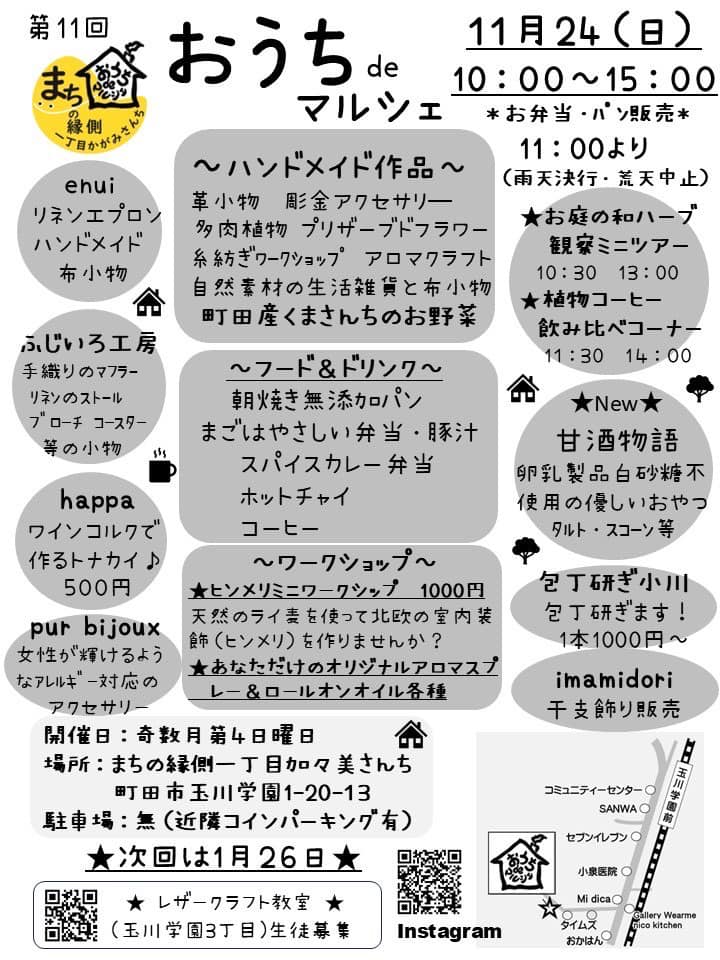 第11回
おうち de
マルシェ
11月24(日)
10:00～15:00
＊お弁当・パン販売＊
11:00より
(雨天決行・荒天中止)
おうち de マルシェ
まち
の
縁側
一丁目かがみさんち
～ハンドメイド作品～
革小物　彫金アクセサリー
多肉植物 プリザーブドフラワー
糸紡ぎワークショップ　アロマクラフト
自然素材の生活雑貨と布小物
町田産くまさんちのお野菜
enui
リネンエプロン
ハンドメイド
布小物
ふじいろ工房
手織りのマフラー
リネンのストール
ブローチ コースター
等の小物
happa
ワインコルクで
作るトナカイ♪
500円
pur bijoux
女性が輝けるよう
なアレルギー対応の
アクセサリー
～フード＆ドリンク～
朝焼き無添加パン
まごはやさしい弁当・豚汁
スパイスカレー弁当
ホットチャイ
コーヒー
～ワークショップ～
★ヒンメリミニワークシップ　1000円
天然のライ麦を使って北欧の室内装
飾(ヒンメリ)を作りませんか？
★あなただけのオリジナルアロマスプ
レー＆ロールオンオイル各種
★お庭の和ハーブ
観察ミニツアー
10:30　13:00
★植物コーヒー
飲み比べコーナー
11:30　14:00
★New★
甘酒物語
卵乳製品白砂糖不
使用の優しいおやつ
タルト・スコーン等
包丁研ぎ小川
包丁研ぎます！
1本1000円～
imamidori
干支飾り販売
開催日：奇数月第4日曜日
場所：まちの縁側一丁目加々美さんち
町田市玉川学園1-20-13
駐車場：無(近隣コインパーキング有)
★次回は1月26日★
★ レザークラフト教室 ★
(玉川学園3丁目)生徒募集
Instagram
玉川学園前
コミュニティーセンター
SANWA
セブンイレブン
小泉医院
Mi dica
おうち de マルシェ
Gallery Wearme
nico kitchen
タイムズ
おかはん